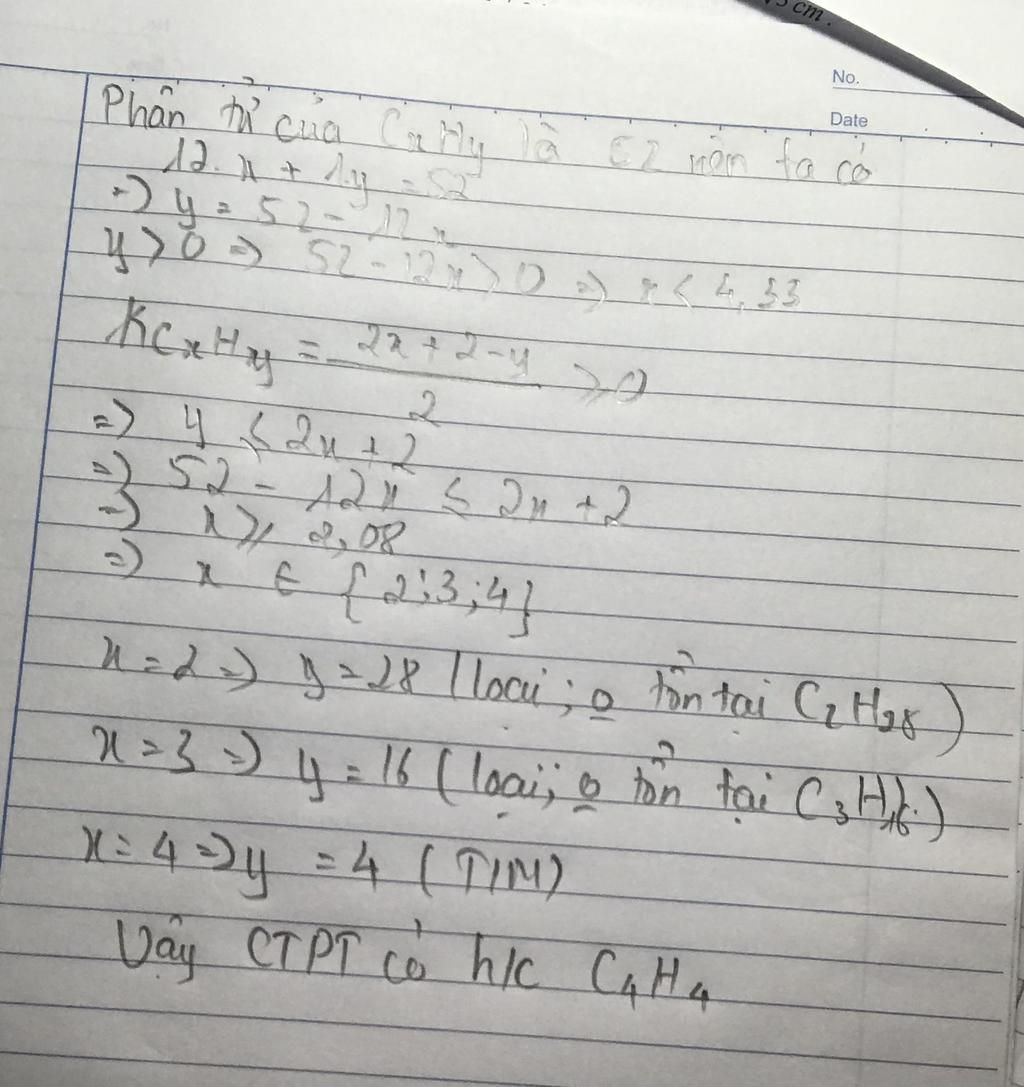 5 cm.
No.
Date
Phân tử của CxHy là 52 nên ta có
12.x + 1.y = 52
=> y = 52 - 12x
y > 0 => 52 - 12x > 0 => x < 4,33
KCxHy = 2x + 2 - y / 2 ≥ 0
=> y ≤ 2x + 2
=> 52 - 12x ≤ 2x + 2
=> x ≥ 2,08
=> x ∈ {2;3;4}
x = 2 => y = 28 (loại; o tồn tại C2H28)
x = 3 => y = 16 (loại; o tồn tại C3H16)
x = 4 => y = 4 (T/M)
Vậy CTPT có h/c C4H4